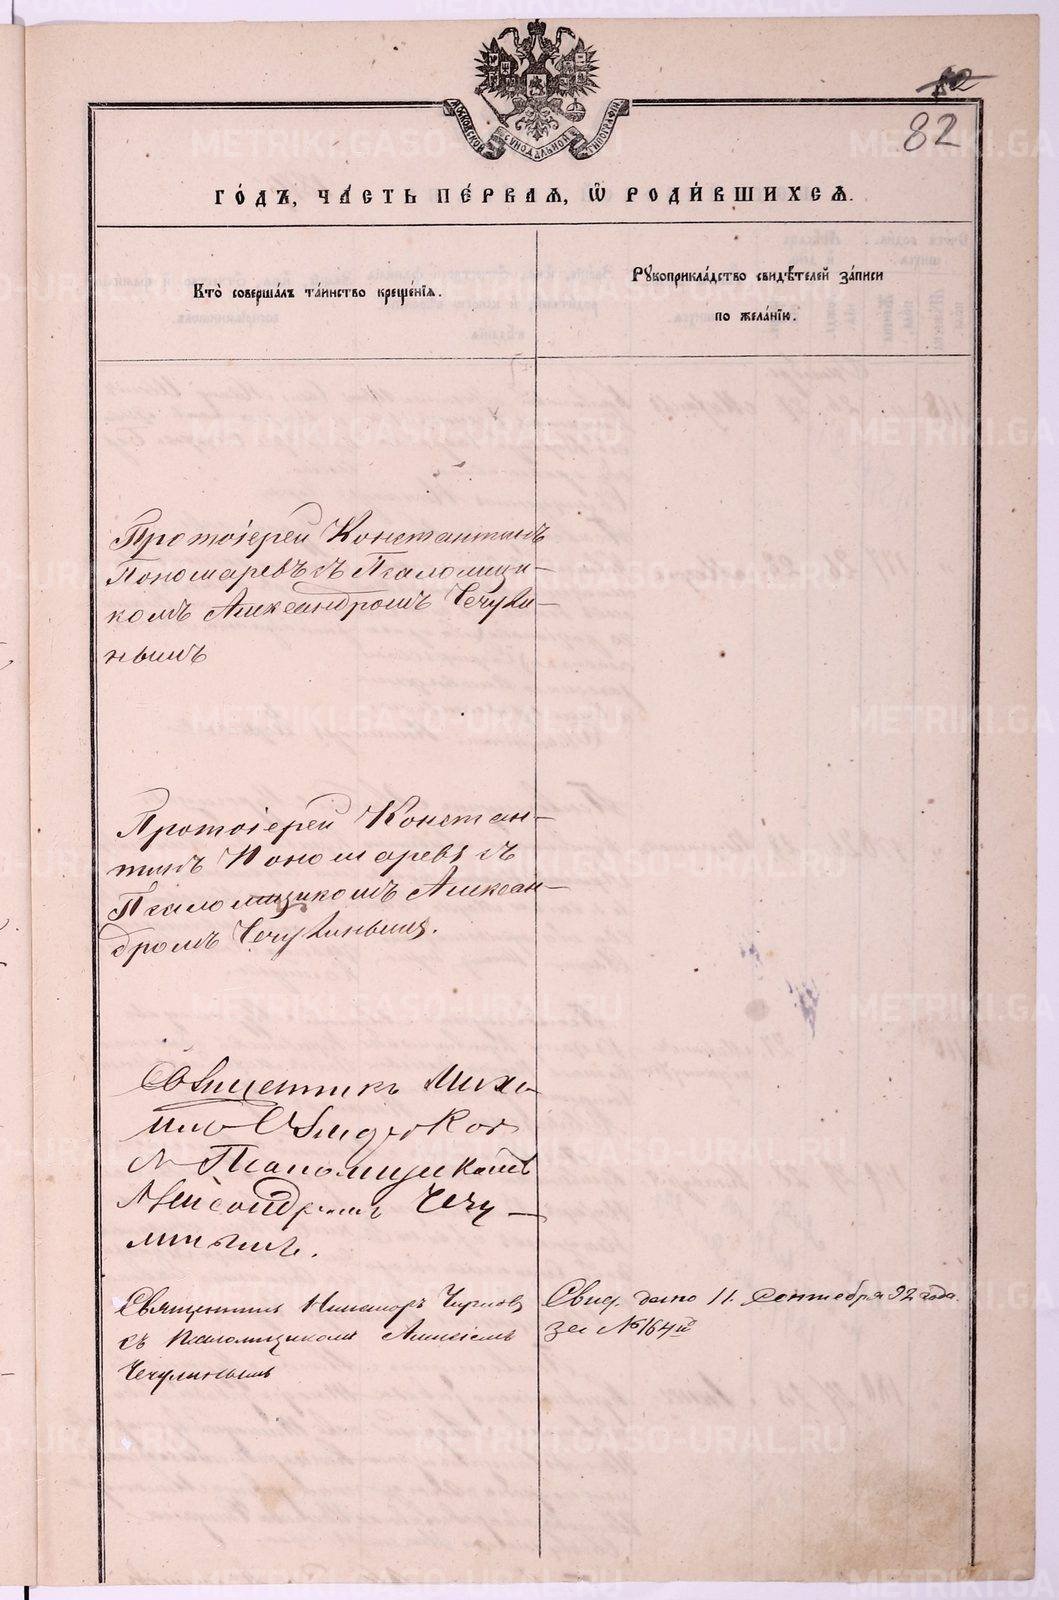 МОСКОВСКОЙ СУНОДАЛЬНОЙ ТИПОГРАФІИ
82
ГО́ДЪ, ЧА́СТЬ ПЕ́РВАѦ, Ѽ РОДИ́ВШИХСѦ.
Кто̀ соверша́лъ та́инство креще́нїѧ.
Рꙋкоприкла́дство свидѣ́телей за́писи
по жела́нїю.
Протоіерей Константинъ
Пономаревъ съ Псаломщи-
комъ Александромъ Чечули-
нымъ
Протоіерей Констан-
тинъ Пономаревъ съ
Псаломщикомъ Алексан-
дромъ Чечулинымъ.
Священникъ Миха-
илъ
съ Псаломщикомъ
Александромъ Чечу-
линымъ.
Священникъ Никаноръ
съ псаломщикомъ
Чечулинымъ
Свид. дано 11. Сентября 92 года.
за №164
METRIKI.GASO-URAL.RU